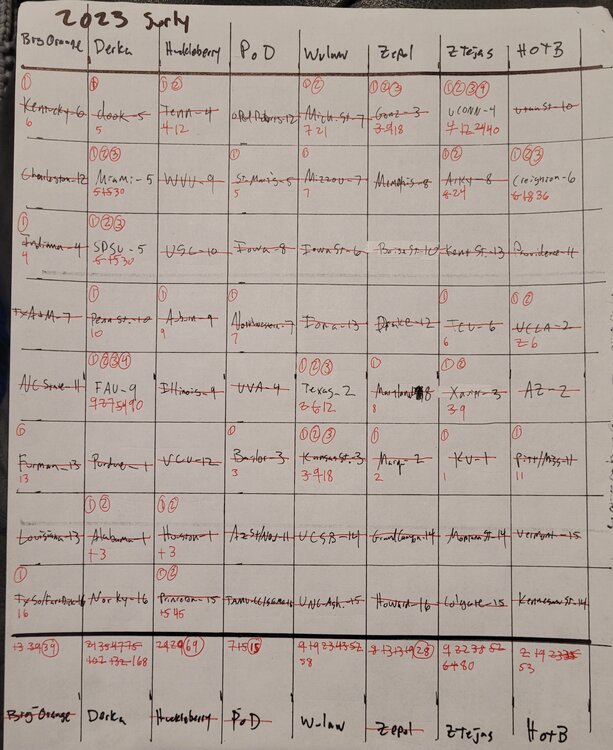 2023 Surly
BrgOrange Derka Huckleberry PoD Wulaw Zepol ZTejas HOTB
① ① ①② ①② ①②③ ①②③④
Kentucky-6 dook-5 Tenn-4 Mich. St-7 Gonz-3 UCONN-4 Utah St-10
6 5 4 12 7 21 3 9 18 4 12 24 40
①②③ ① ① ①② ①②③
Charleston-12 Miami-5 WVU-9 St. Marys-5 Mizzou-7 Memphis-8 Arky-8 Creighton-6
5 15 30 5 7 8 24 6 18 36
① ①②③
Indiana-4 SDSU-5 USC-10 Iowa-8 Iowa St-6 Boise St-10 Kent St.-13 Providence-11
4 5 15 30
① ① ① ① ①②
TxA&M-7 Penn St.-10 Auburn-9 Northwestern-7 Iona-13 Drake-12 TCU-6 UCLA-2
10 9 7 6 2 6
①②③④ ①②③ ① ①②
NC State-11 FAU-9 Illinois-9 UVA-4 Texas-2 Maryland-8 Xavier-3 AZ-2
9 27 54 90 2 6 12 8 3 9
① ① ①②③ ① ① ①
Furman-13 Purdue-1 VCU-12 Baylor-3 Kansas St.-3 Marq-2 KU-1 Pitt/Miss-11
13 3 3 9 18 2 1 11
①② ①②
Louisiana-13 Alabama-1 Houston-1 AzSt/Nev-11 UCSB-14 Grand Canyon-14 Montana St-14 Vermont-15
1 3 1 3
① ①②
TxSo/FarDick-16 Norky-16 Princeton-15 TAMU-CC/SEMO-16 UNC-Ash.-15 Howard-16 Colgate-15 Kennesaw St-14
16 15 45
13 39 39 69 7 15 15 28
168 58 64 80 53
BrgOrange Derka Huckleberry PoD Wulaw Zepol ZTejas HOTB